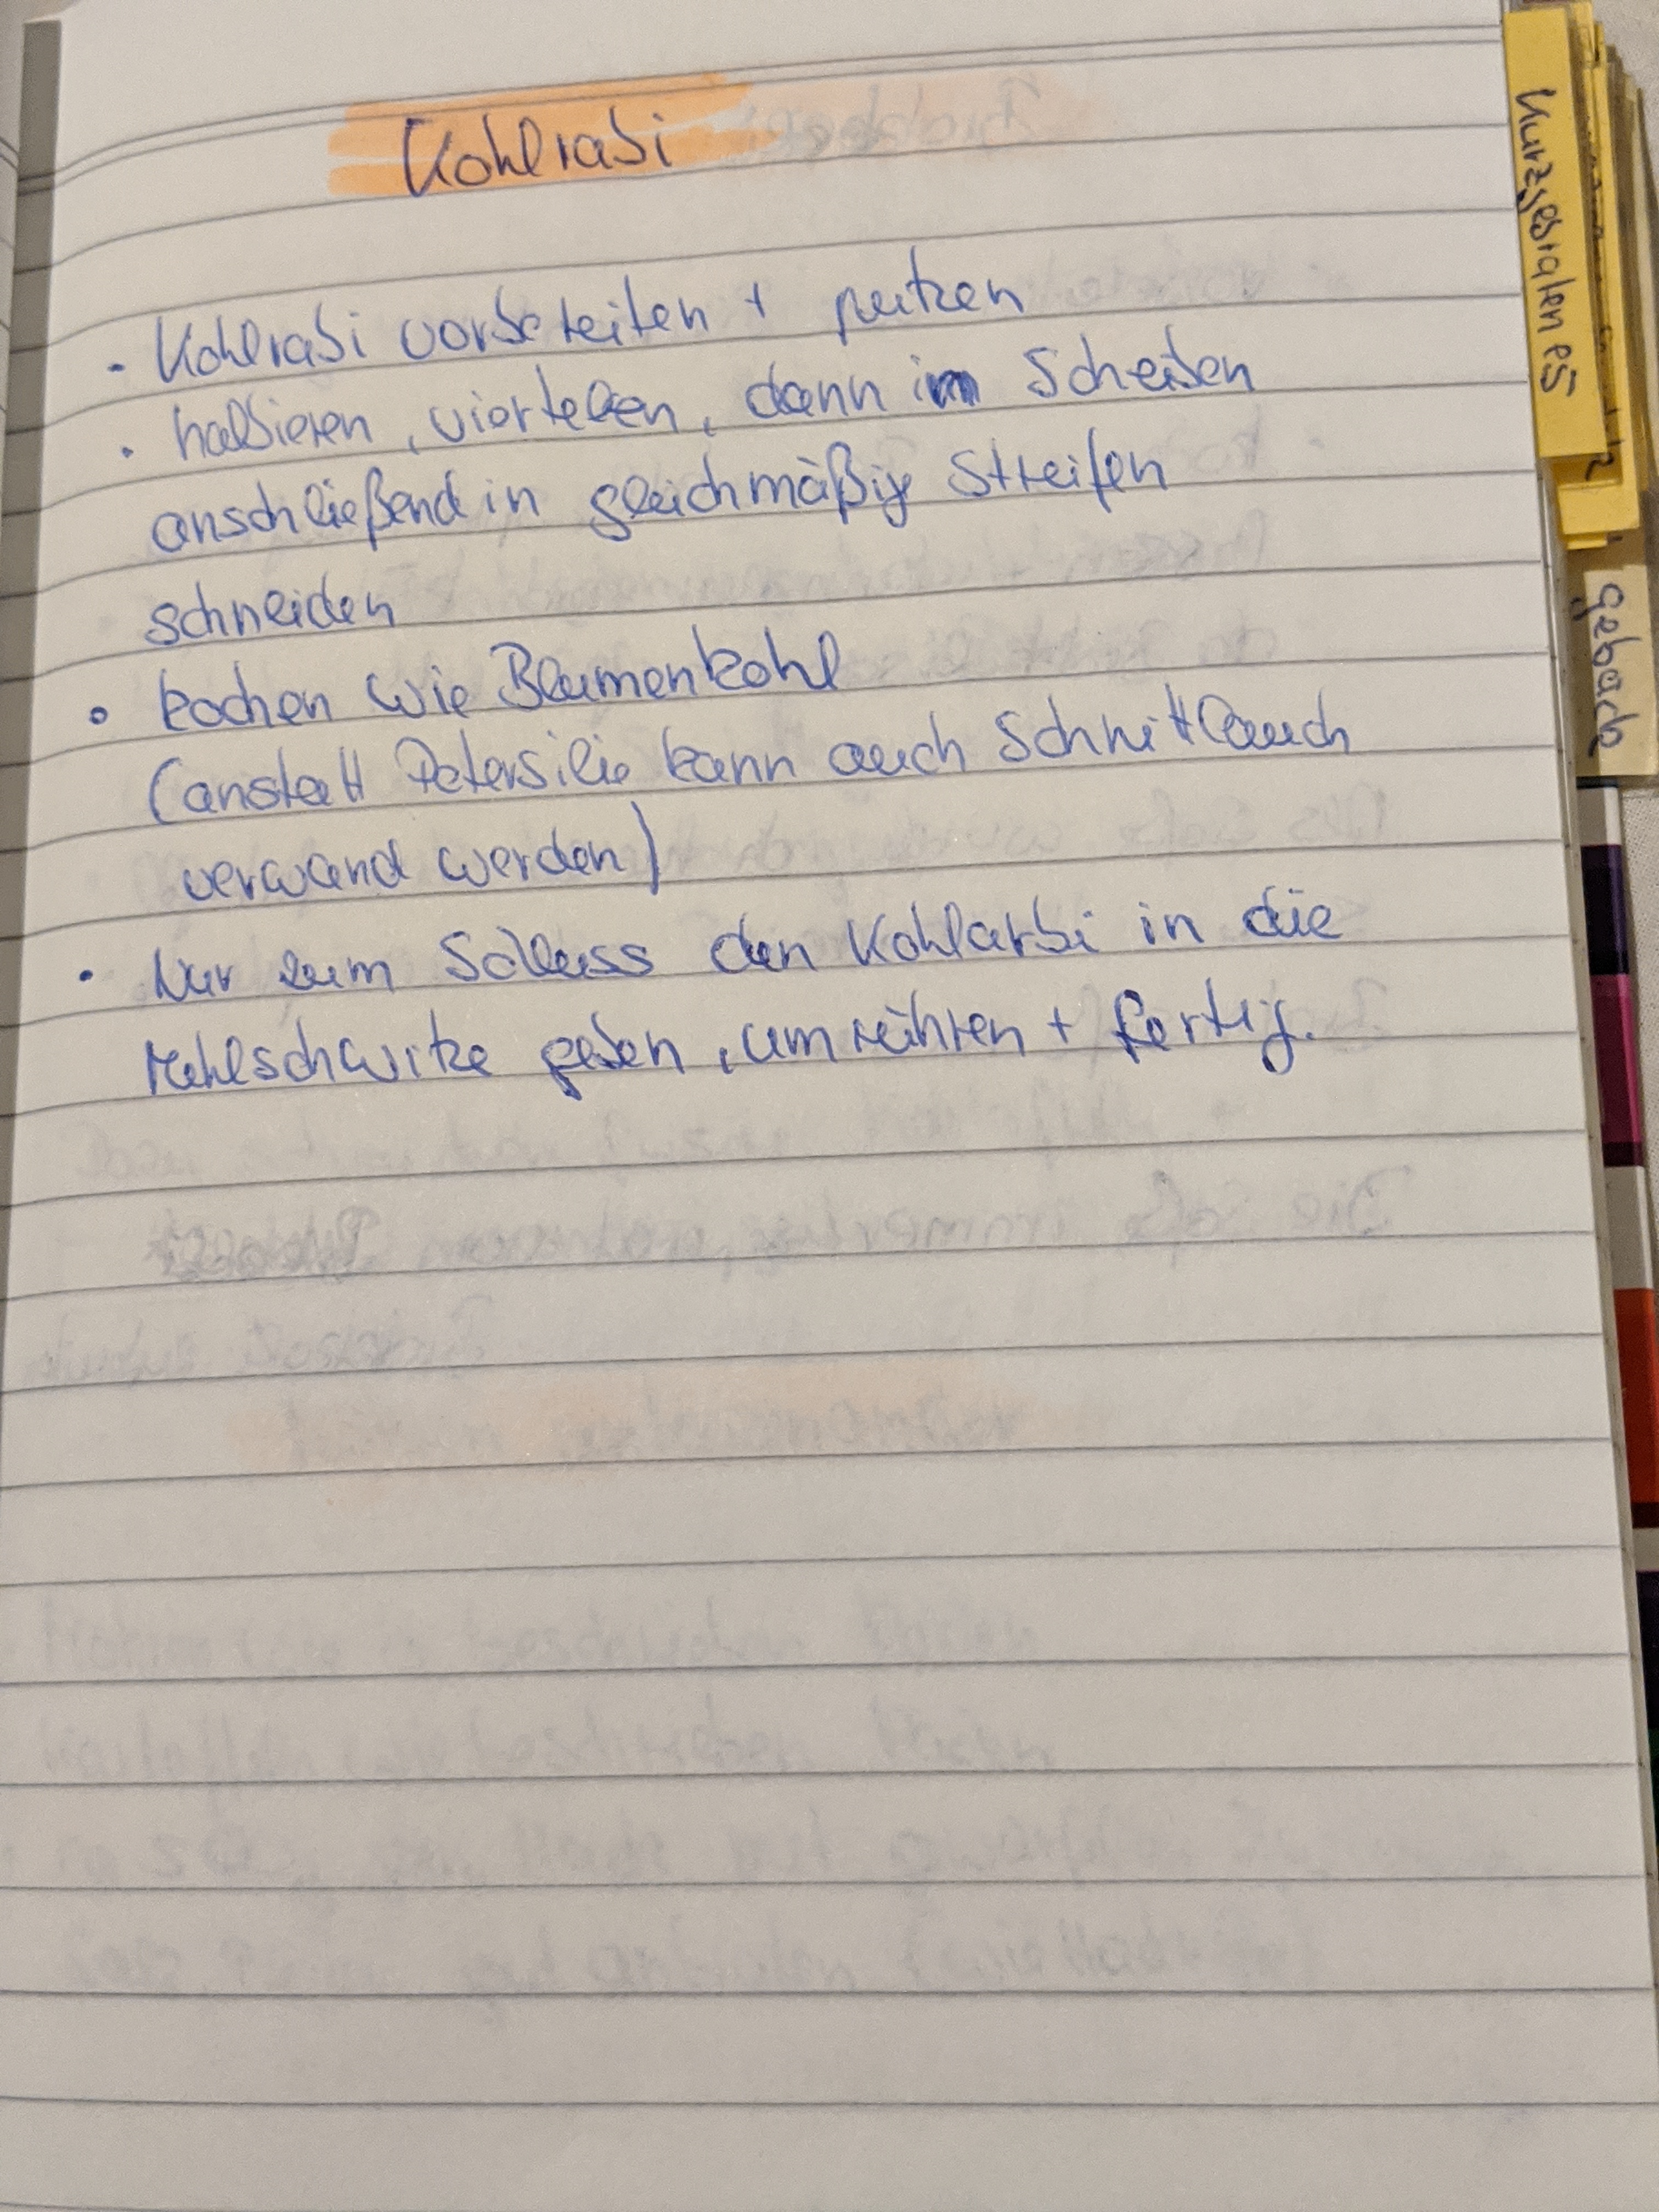 Kohlrabi
- Kohlrabi vorbereiten + putzen
. halbieren, vierteln, dann in Scheiben
anschließend in gleichmäßig Streifen
schneiden
• kochen wie Blumenkohl
(anstatt Petersilie kann auch Schnittlauch
verwand werden)
• Nur zum Schluss den Kohlarbi in die
Mehlschwitze geben, umrühren + fertig.
Kurzgebratenes
Gebäck